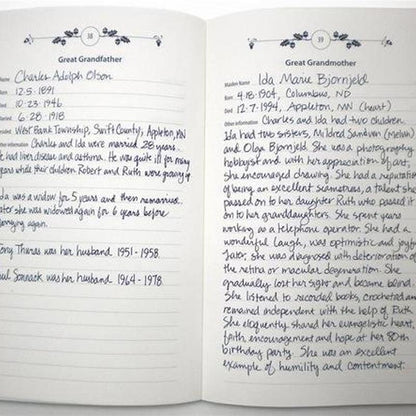 38
Great Grandfather
Name Charles Adolph Olson
Born 12.5.1891
Died 10.23.1946
Married 6.28.1918
Resided West Bank Township, Swift County, Appleton, MN
Other information Charles and Ida were married 28 years.
had liver disease and asthma. He was quite ill for many
years while their children Robert and Ruth were growing up
Ida was a widow for 5 years and then remarried.
later she was widowed again for 6 years before
marrying again.
Tony Theras was her husband 1951-1958.
Paul Sonnack was her husband 1964-1978.
39
Great Grandmother
Maiden Name Ida Marie Bjornjeld
Born 4.18.1904, Columbus, ND
Died 12.7.1994, Appleton, MN (heart)
Other information Charles and Ida had two children
Ida had two sisters, Mildred Sandven (Melvin)
and Olga Bjornjeld. She was a photography
hobbyist and with her appreciation of art,
she encouraged drawing. She had a reputation
of being an excellent seamstress, a talent she
passed on to her daughter Ruth who passed it
on to her granddaughters. She spent years
working as a telephone operator. She had a
wonderful laugh, was optimistic and joyful.
Later, she was diagnosed with deterioration of
the retina or macular degeneration. She
gradually lost her sight and became blind.
She listened to recorded books, crocheted and
remained independent with the help of Ruth.
She eloquently shared her evangelistic heart,
faith, encouragement and hope at her 80th
birthday party. She was an excellent
example of humility and contentment.